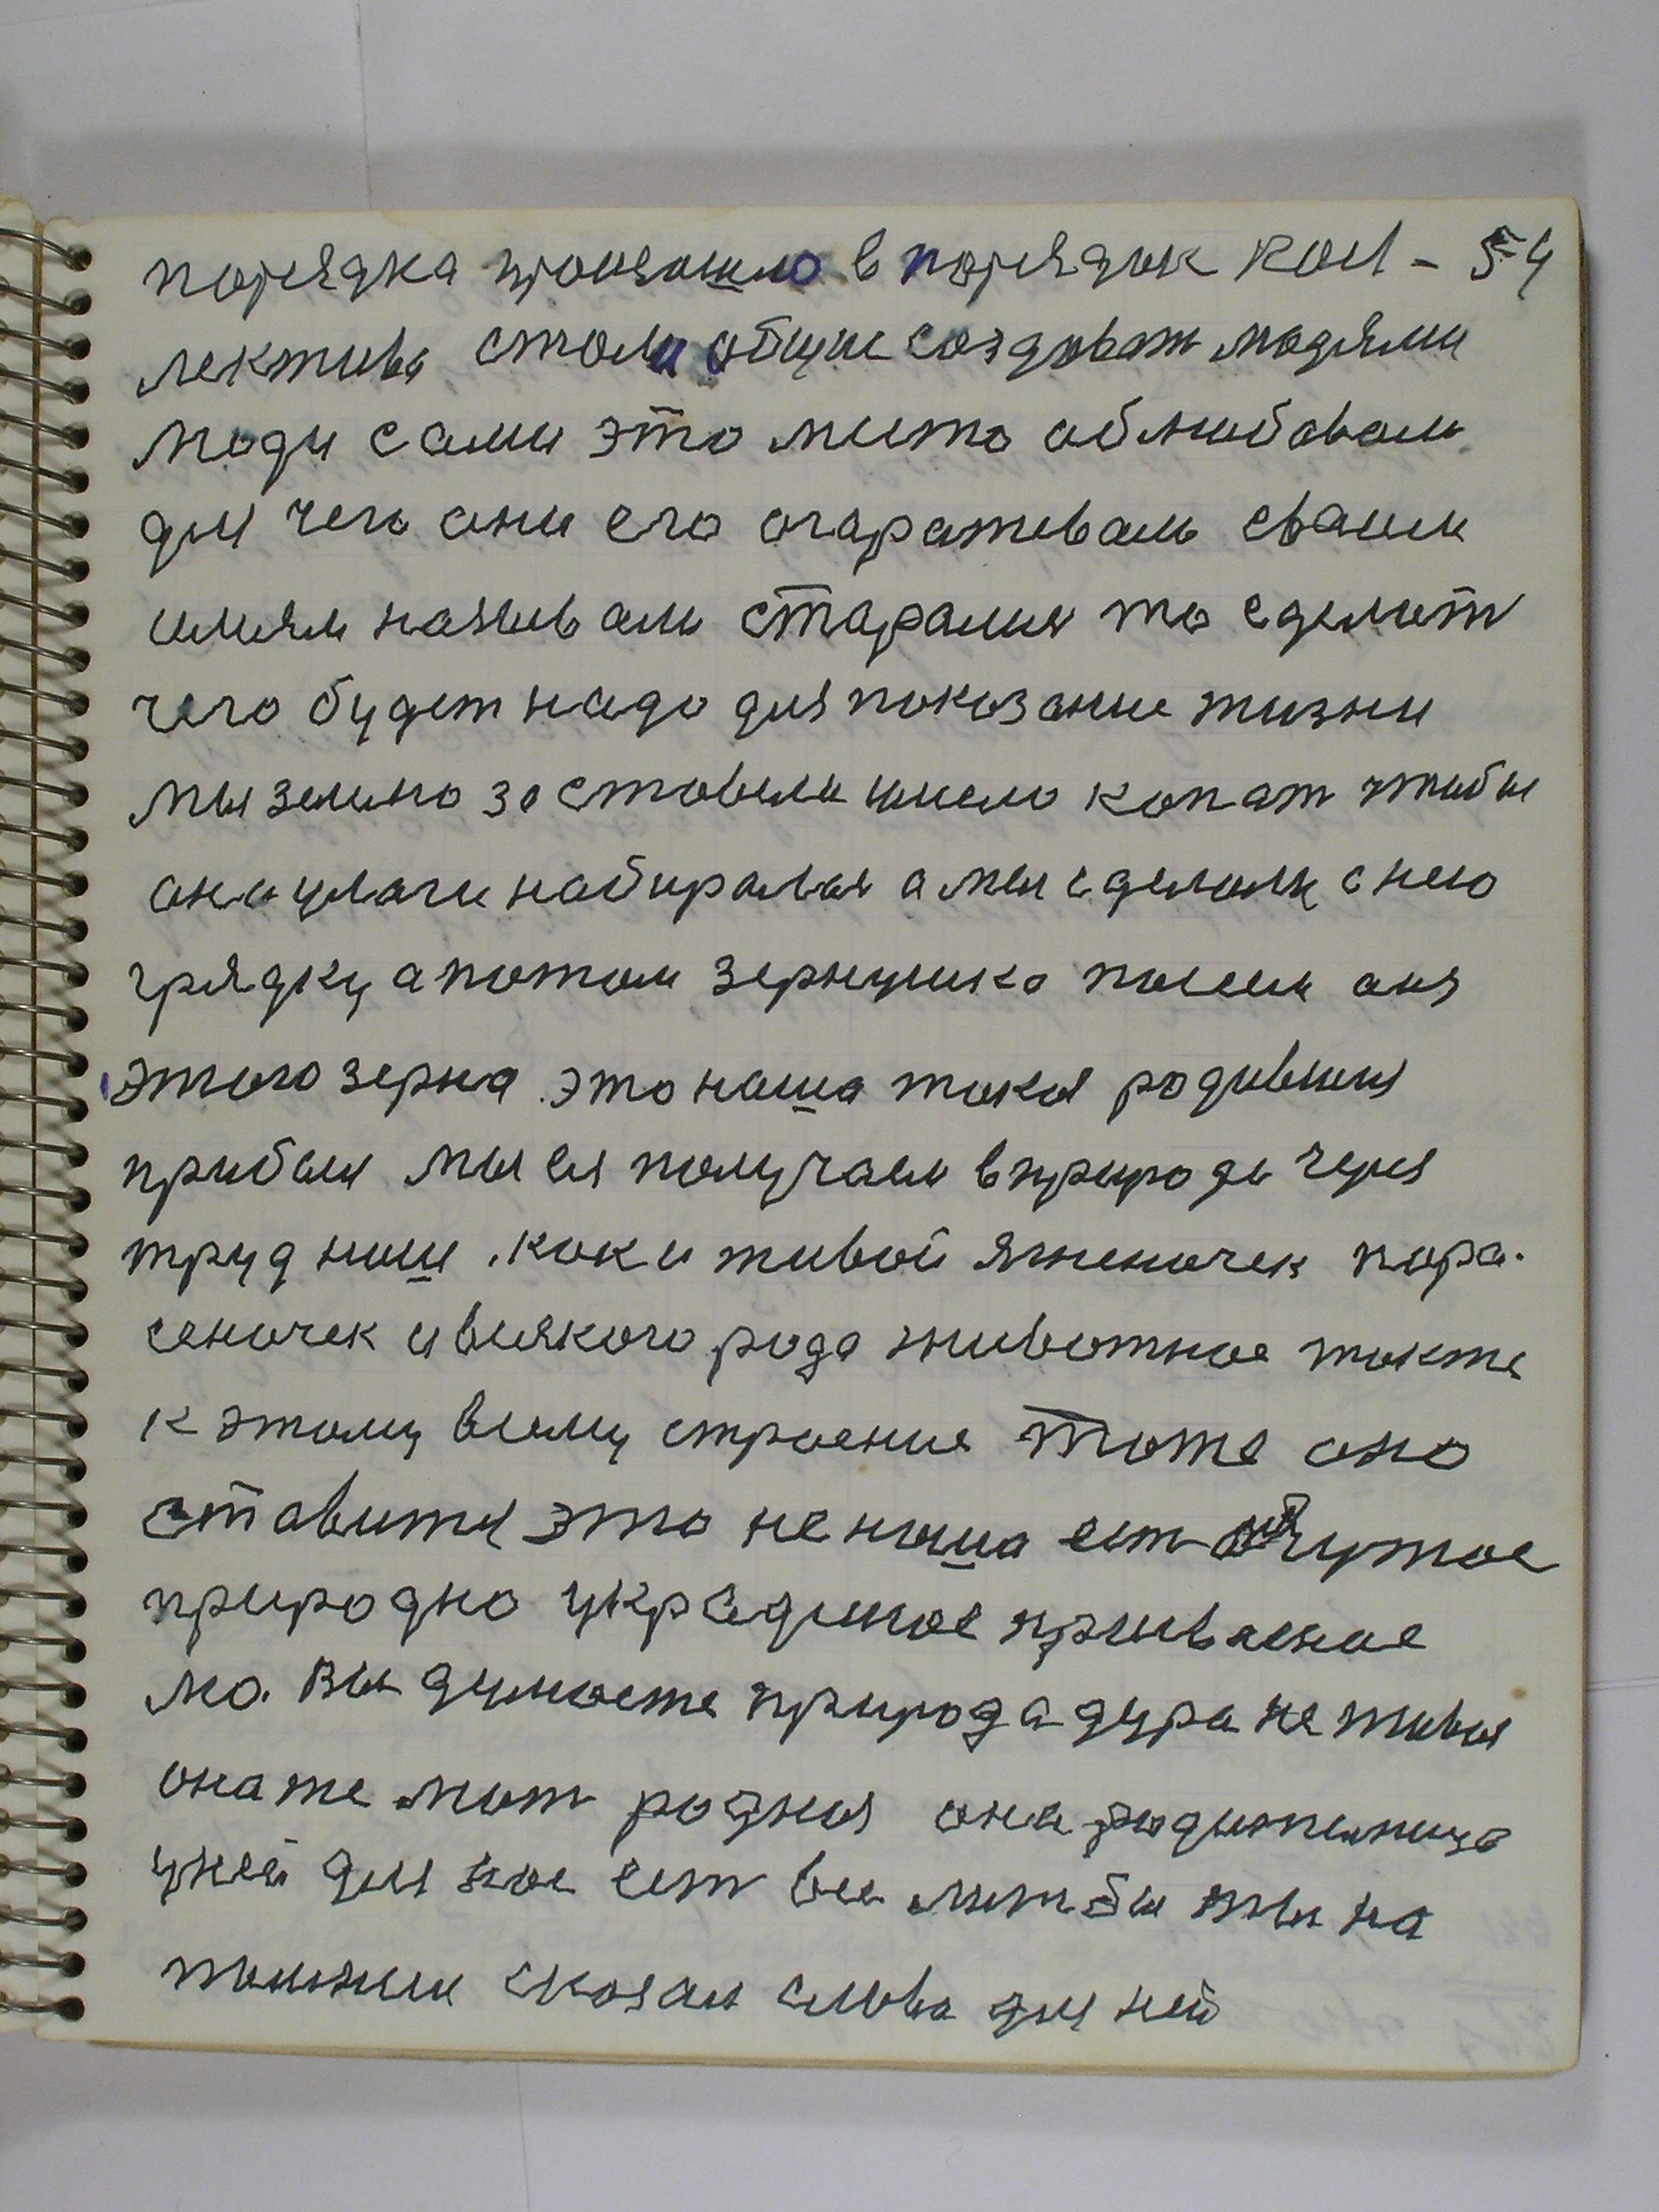 порядка произошло в порядок кол- 54
лектива стали общие создават людями
люди сами это место облюбавали
для чего они его огаратевали сваим
имям называли старалися то сделат
чего будет надо для показание жизни
мы землю заставели умело копат чтобы
она улаги набиралася а мы сделали с нею
грядку а потом зернушка посеели
этого зерна это наша такая родившия
прибыл мы ея получаем в природе через
труд наш. как и живой ягненочек пора-
сеночек и всякого рода животное также
к этому всему строение тоже оно
ставится это не наша ест чужое
природно украденое присвоеное
мо. Вы думаете природа дура не живая
она же мат родная она родительница
у ней для нас ест все
сказал слова для ней